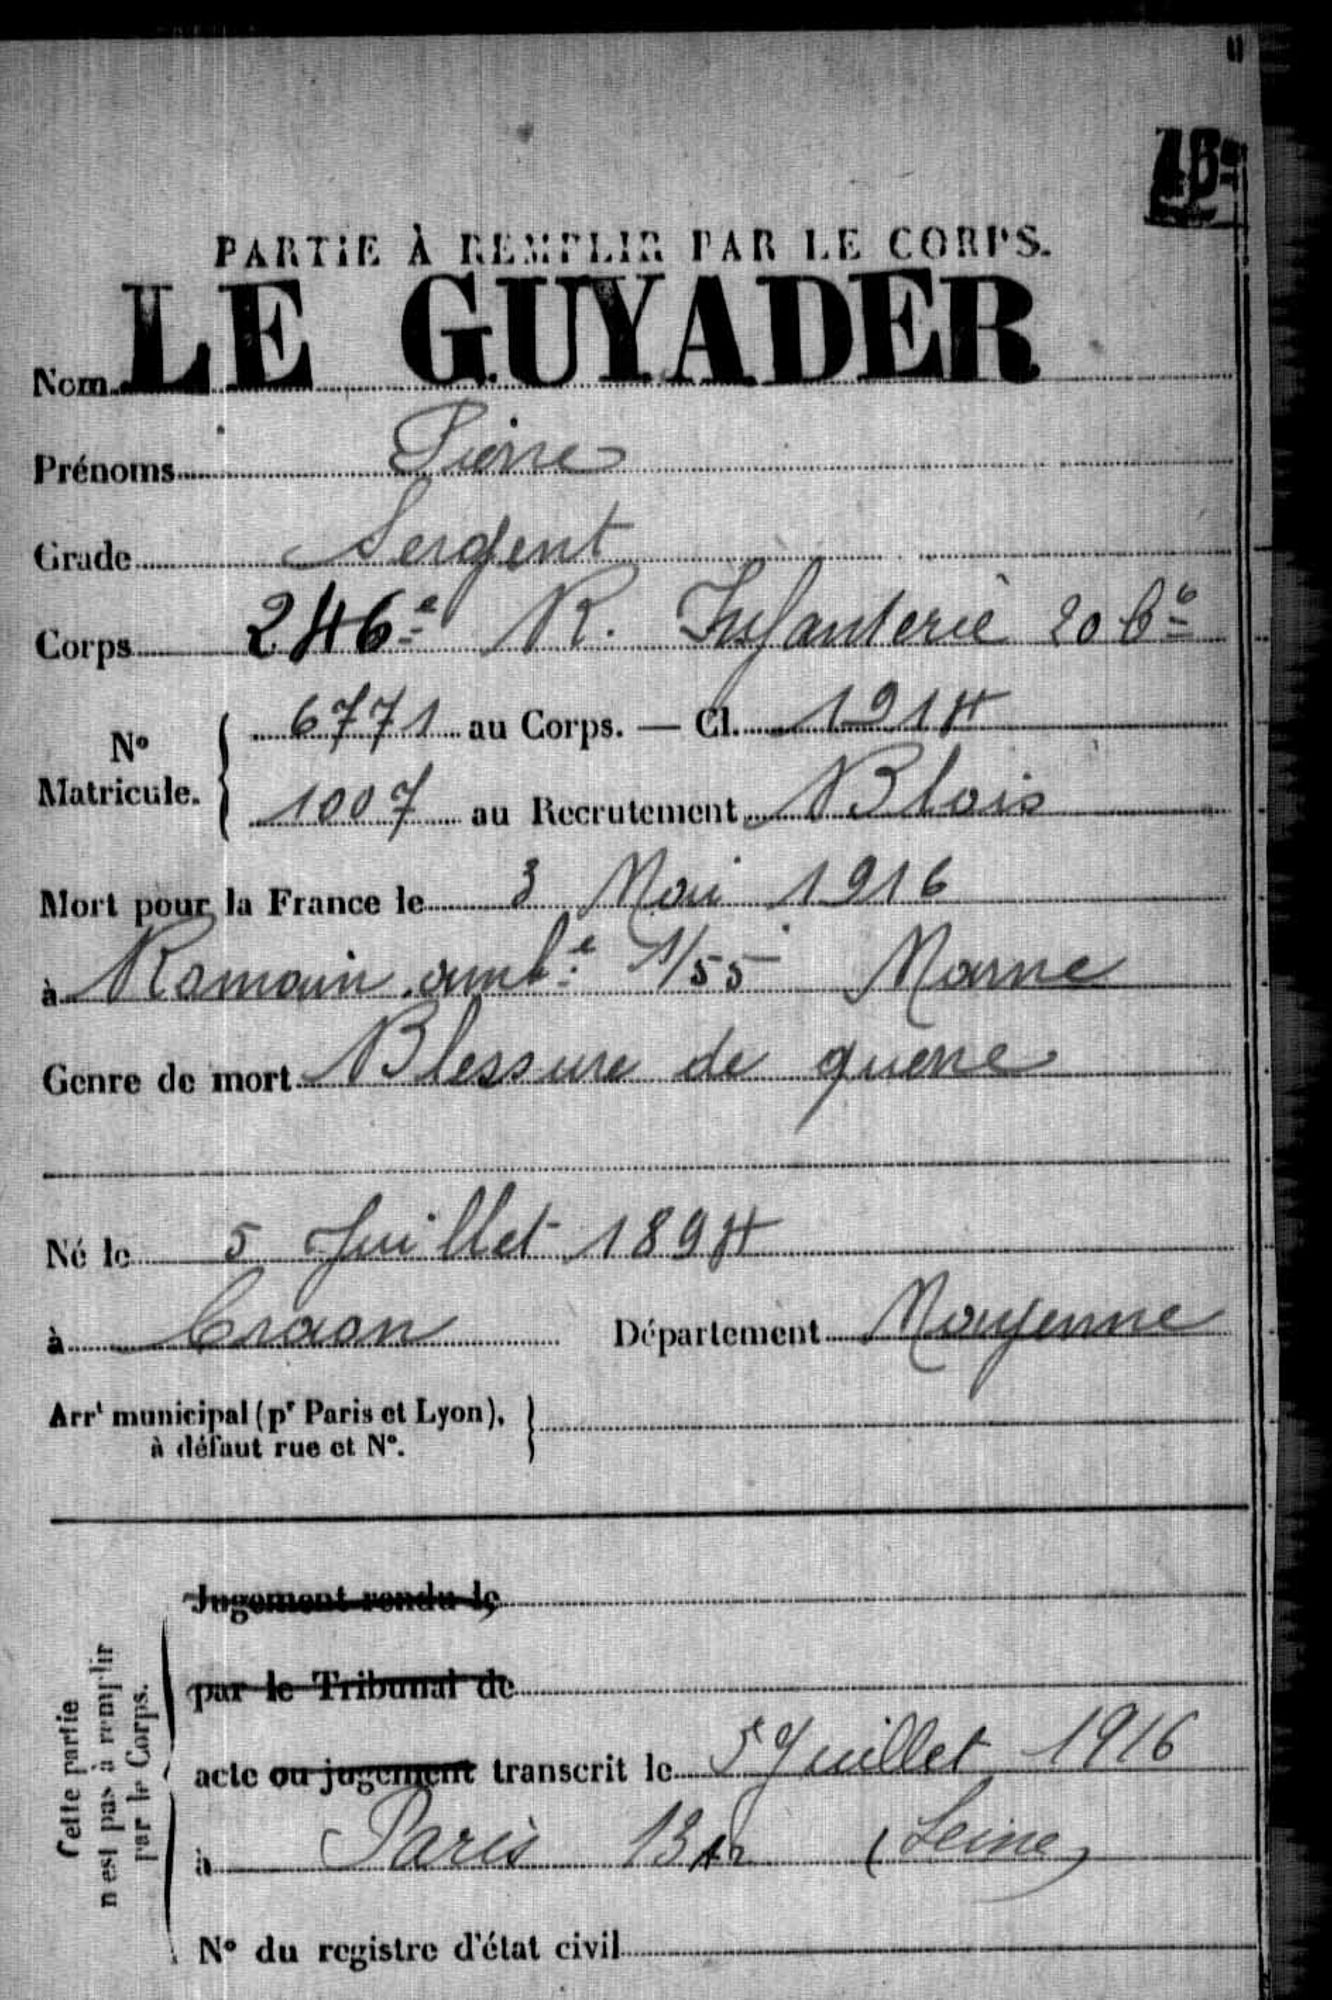 PARTIE À REMPLIR PAR LE CORPS.
Nom LE GUYADER
Prénoms Pierre
Grade Sergent
Corps 246e R. Infanterie 20 Cie
N° Matricule. 6771 au Corps. — Cl. 1914
1007 au Recrutement Blois
Mort pour la France le 3 Mai 1916
à Romain ambce 1/55 Marne
Genre de mort Blessure de guerre
Né le 5 Juillet 1894
à Craon Département Mayenne
Arrt municipal (pr Paris et Lyon),
à défaut rue et N°.
Cette partie
n'est pas à remplir
par le Corps.
Jugement rendu le
par le Tribunal de
acte ou jugement transcrit le 5 Juillet 1916
à Paris 13 Ar (Seine)
N° du registre d'état civil